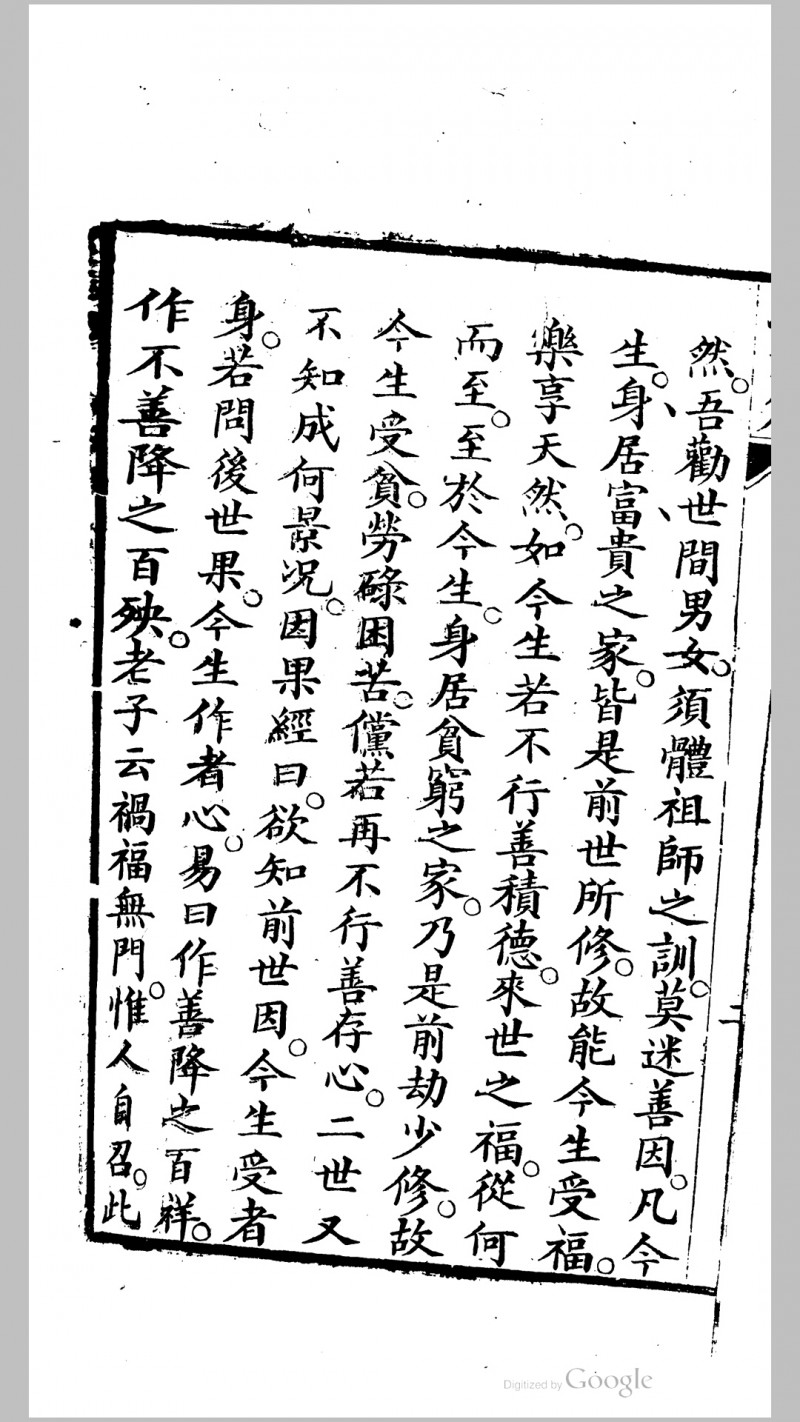 然。吾勸世間男女。須體祖師之訓。莫迷善因。凡今
生。身居富貴之家。皆是前世所修。故能今生受福。
樂享天然。如今生若不行善積德。來世之福。從何
而至。至於今生。身居貧窮之家。乃是前劫少修。故
今生受貧。勞碌困苦。儻若再不行善存心。二世又
不知成何景况。因果經曰。欲知前世因。今生受者
身。若問後世果。今生作者心。易曰作善降之百祥。
作不善降之百殃。老子云禍福無門。惟人自召。此
二
Digitized by Google